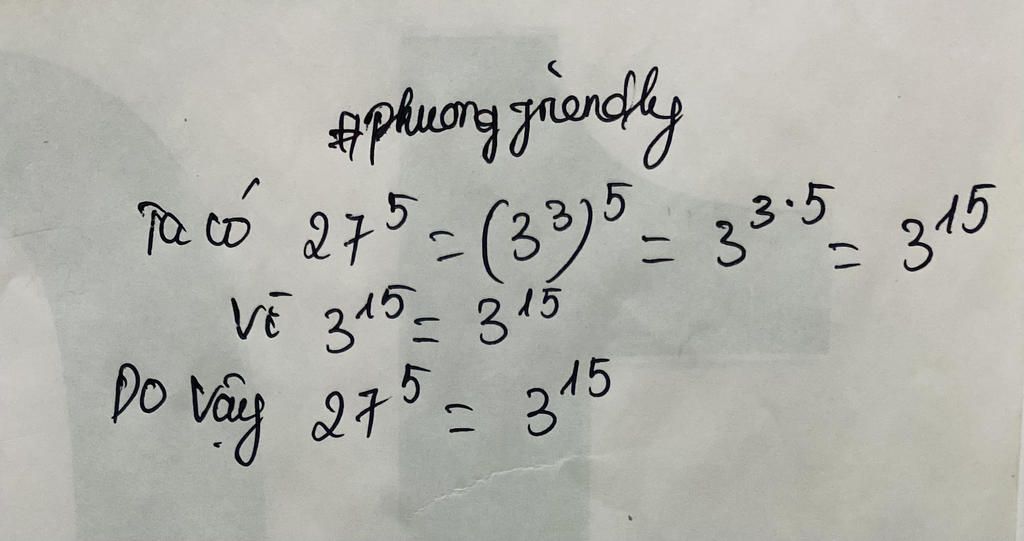 #phuong friendly
Ta có 27⁵ = (3³)⁵ = 3³·⁵ = 3¹⁵
Vì 3¹⁵ = 3¹⁵
Do vậy 27⁵ = 3¹⁵